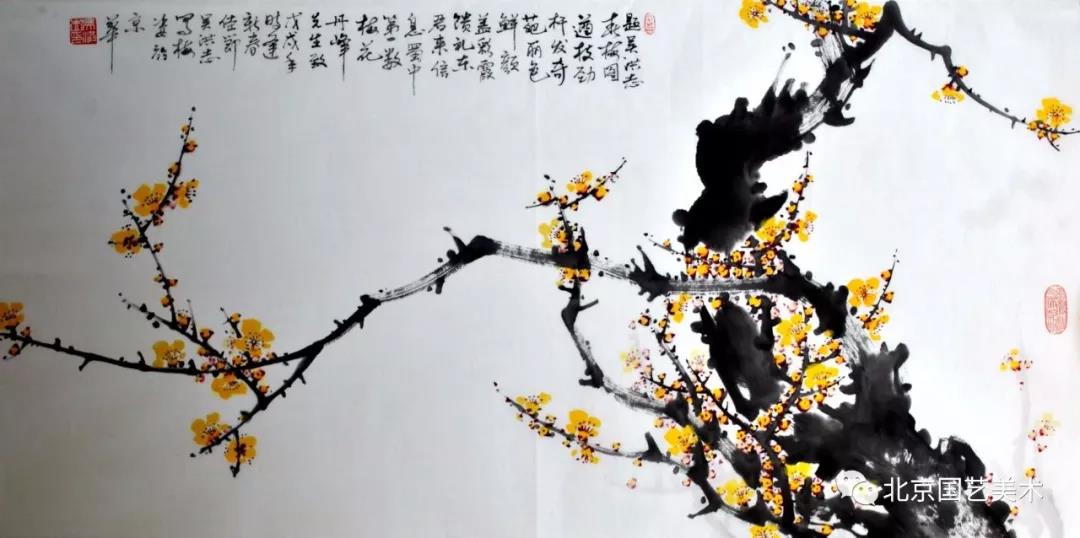 题吴洪志
春梅图
遒枝劲
杆发奇
葩丽色
鲜颜
盖彩霞
馈礼东
君来信
息蜀中
第数
梅花
丹峰
先生致
戊戌年
时逢
新春
佳节
吴洪志
写梅
姿韵
京
华
北京国艺美术